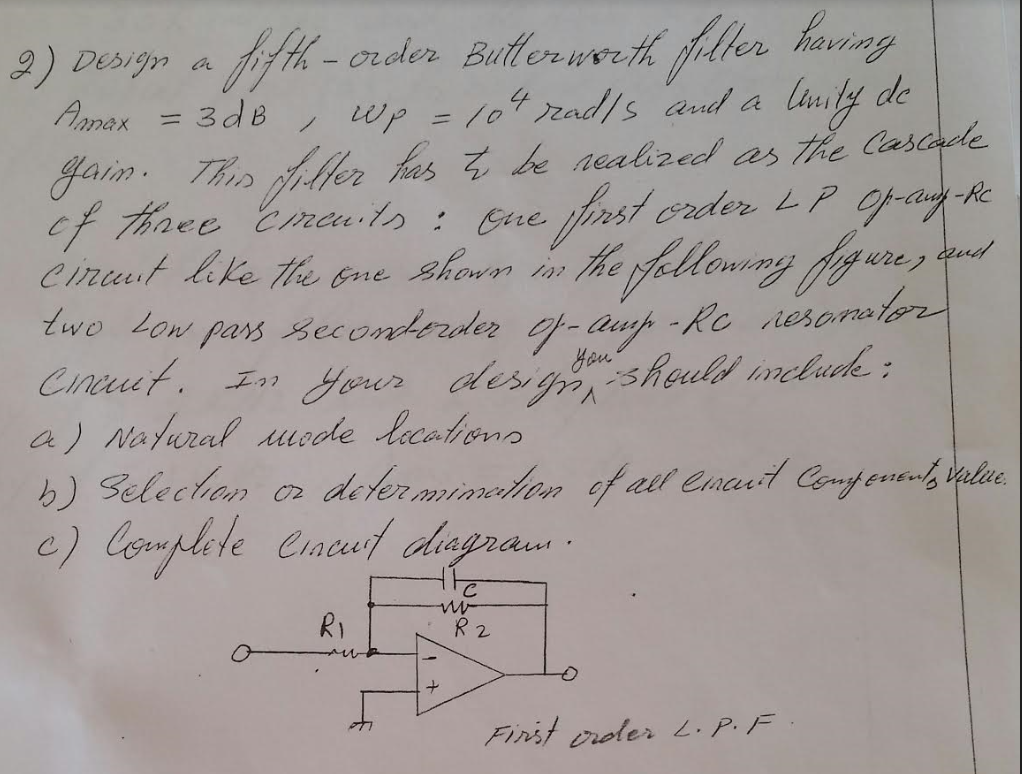 2) Design a fifth-order Butterworth filter having
Amax = 3dB , Wp = 10⁴ rad/s and a Unity dc
gain. This filter has to be realized as the Cascade
of three circuits : one first order LP op-amp-RC
circuit like the one shown in the following figure, and
two Low pass second-order op-amp-RC resonator
circuit. In your design, you should include :
a) Natural mode locations
b) Selection or determination of all circuit Components Value.
c) Complete Circuit diagram.
C
R1
R2
-
+
First order L.P.F.